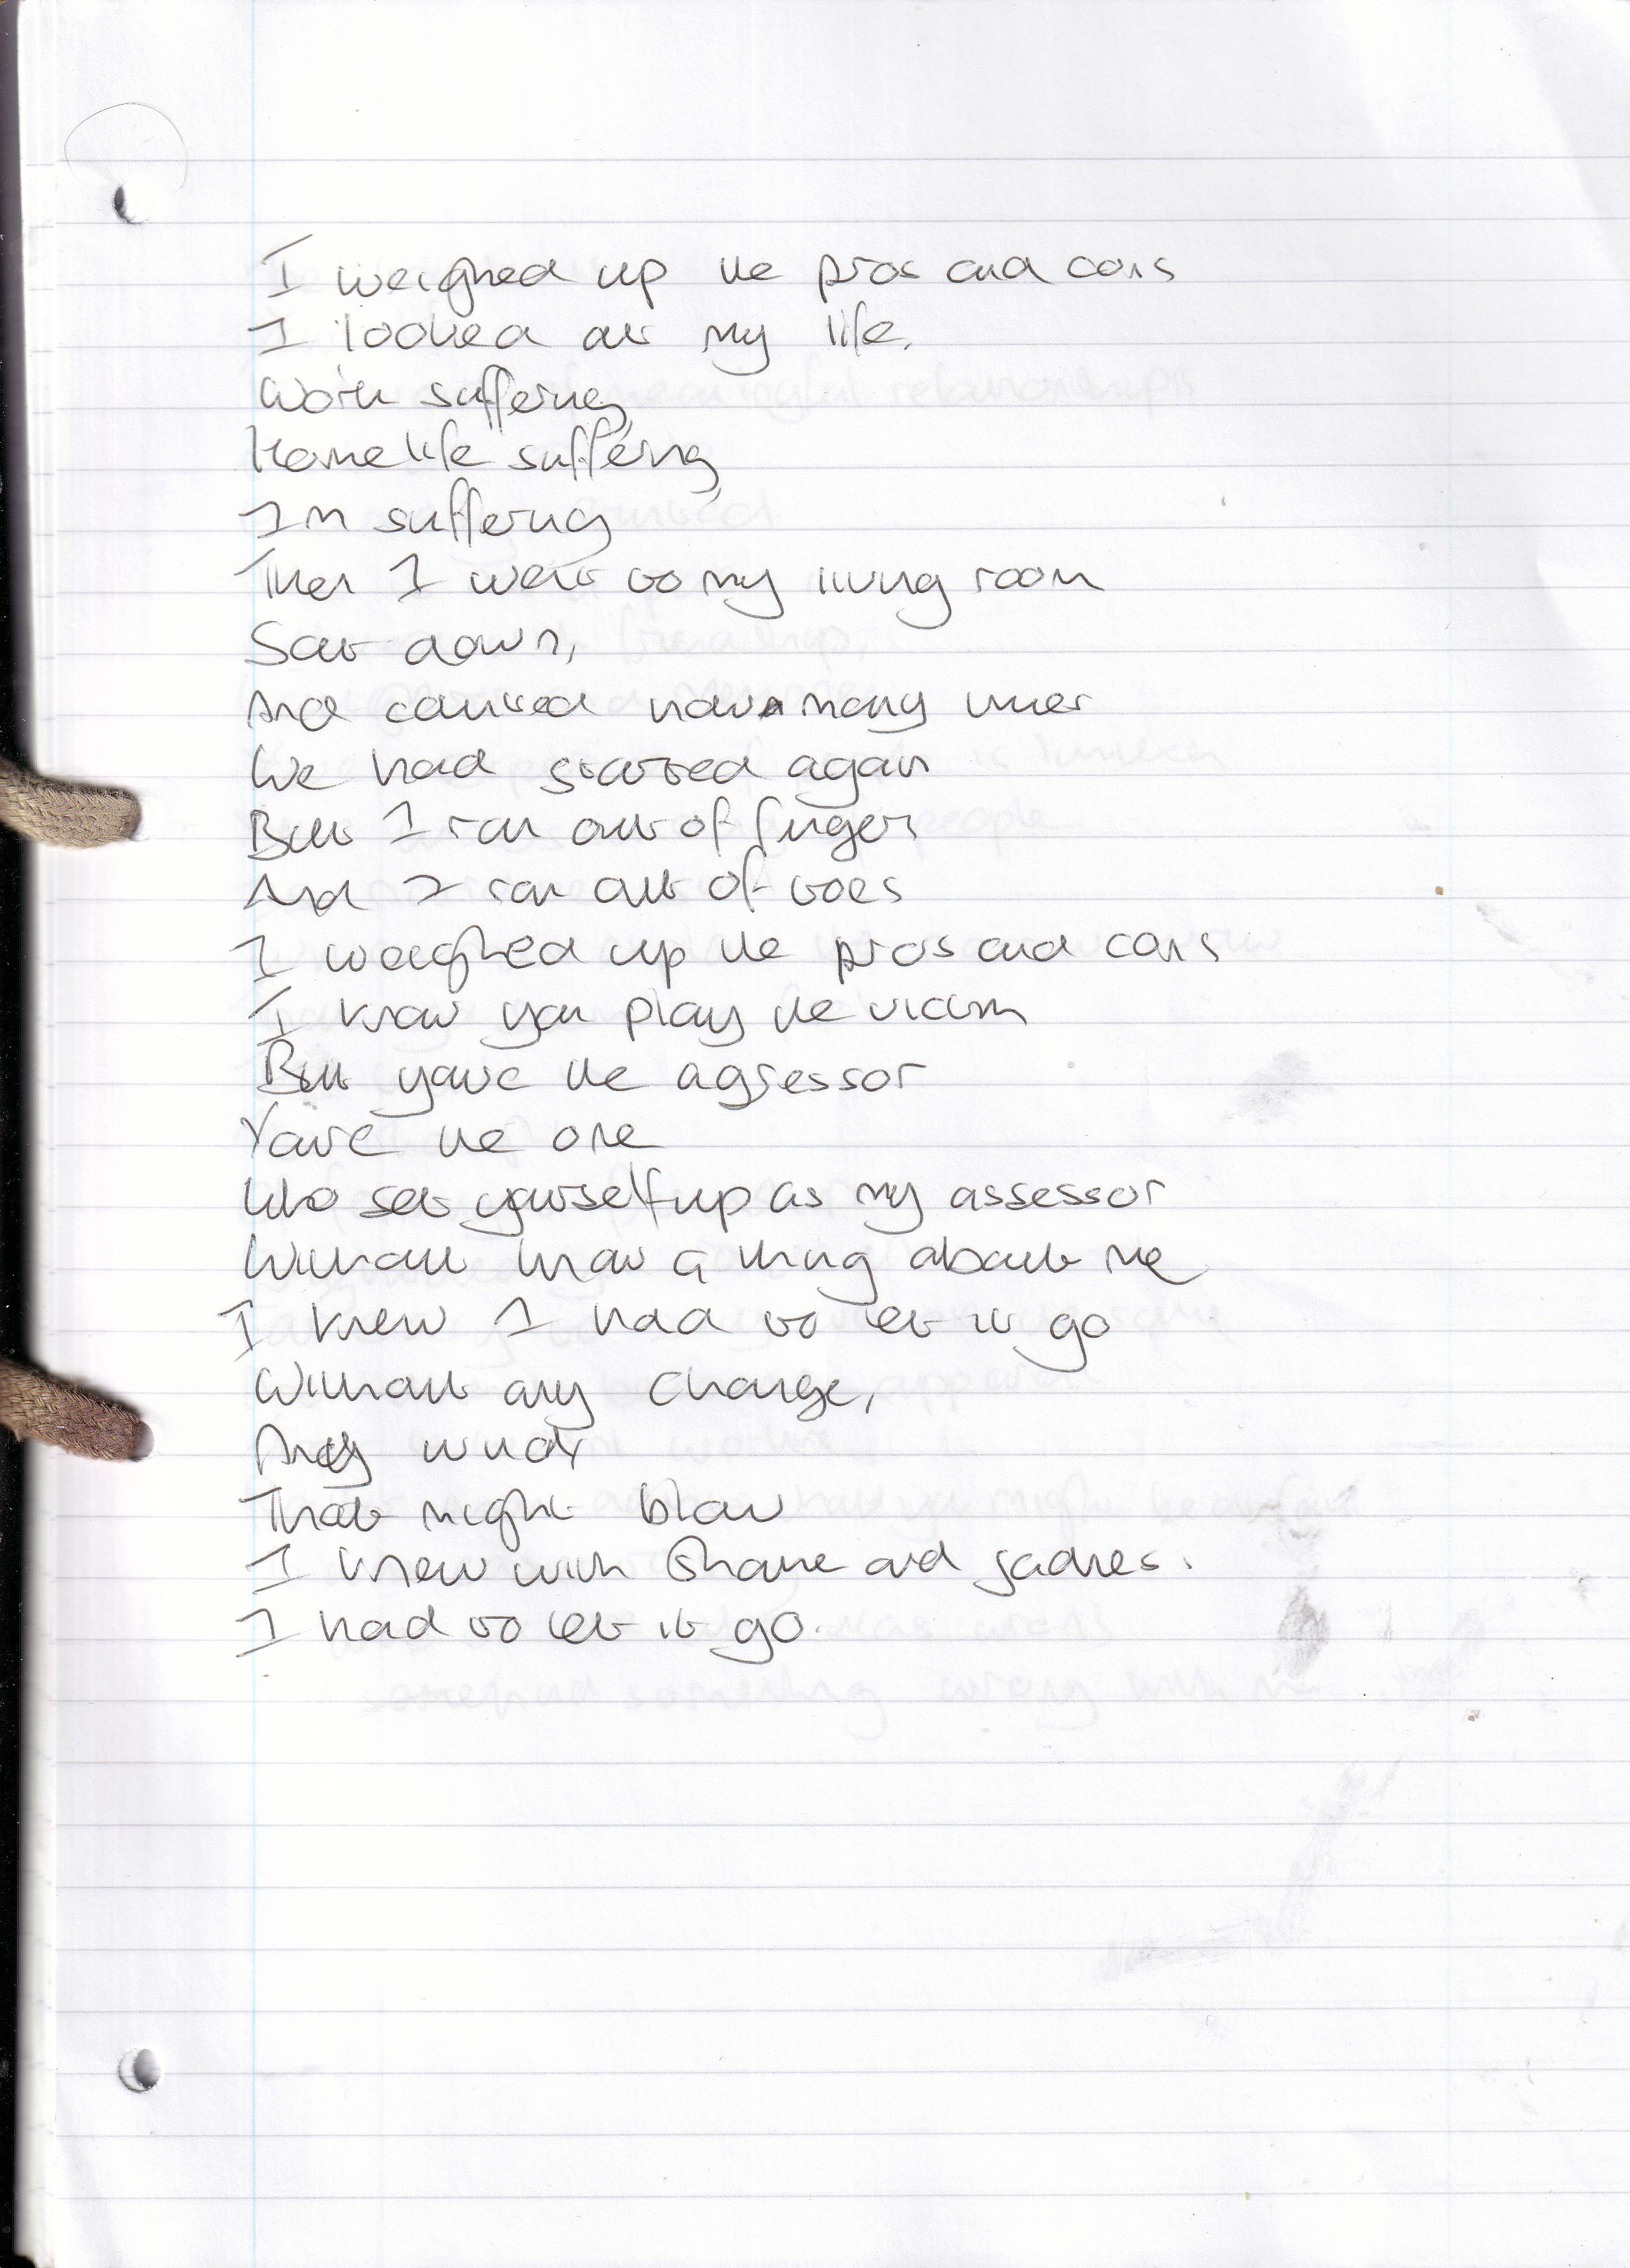 I weighed up the pros and cons
I looked at my life.
Work suffering
Home life suffering
Im suffering
Then I went to my living room
Sat down,
And counted how many times
We had started again
But I ran out of fingers
And I ran out of toes
I weighed up the pros and cons
I know you play the victim
But youre the agressor
Youre the one
Who set yourself up as my assessor
Without know a thing about me
I knew I had to let it go
Without any change,
Any winds
That might blow
I knew with shame and sadness.
I had to let it go.